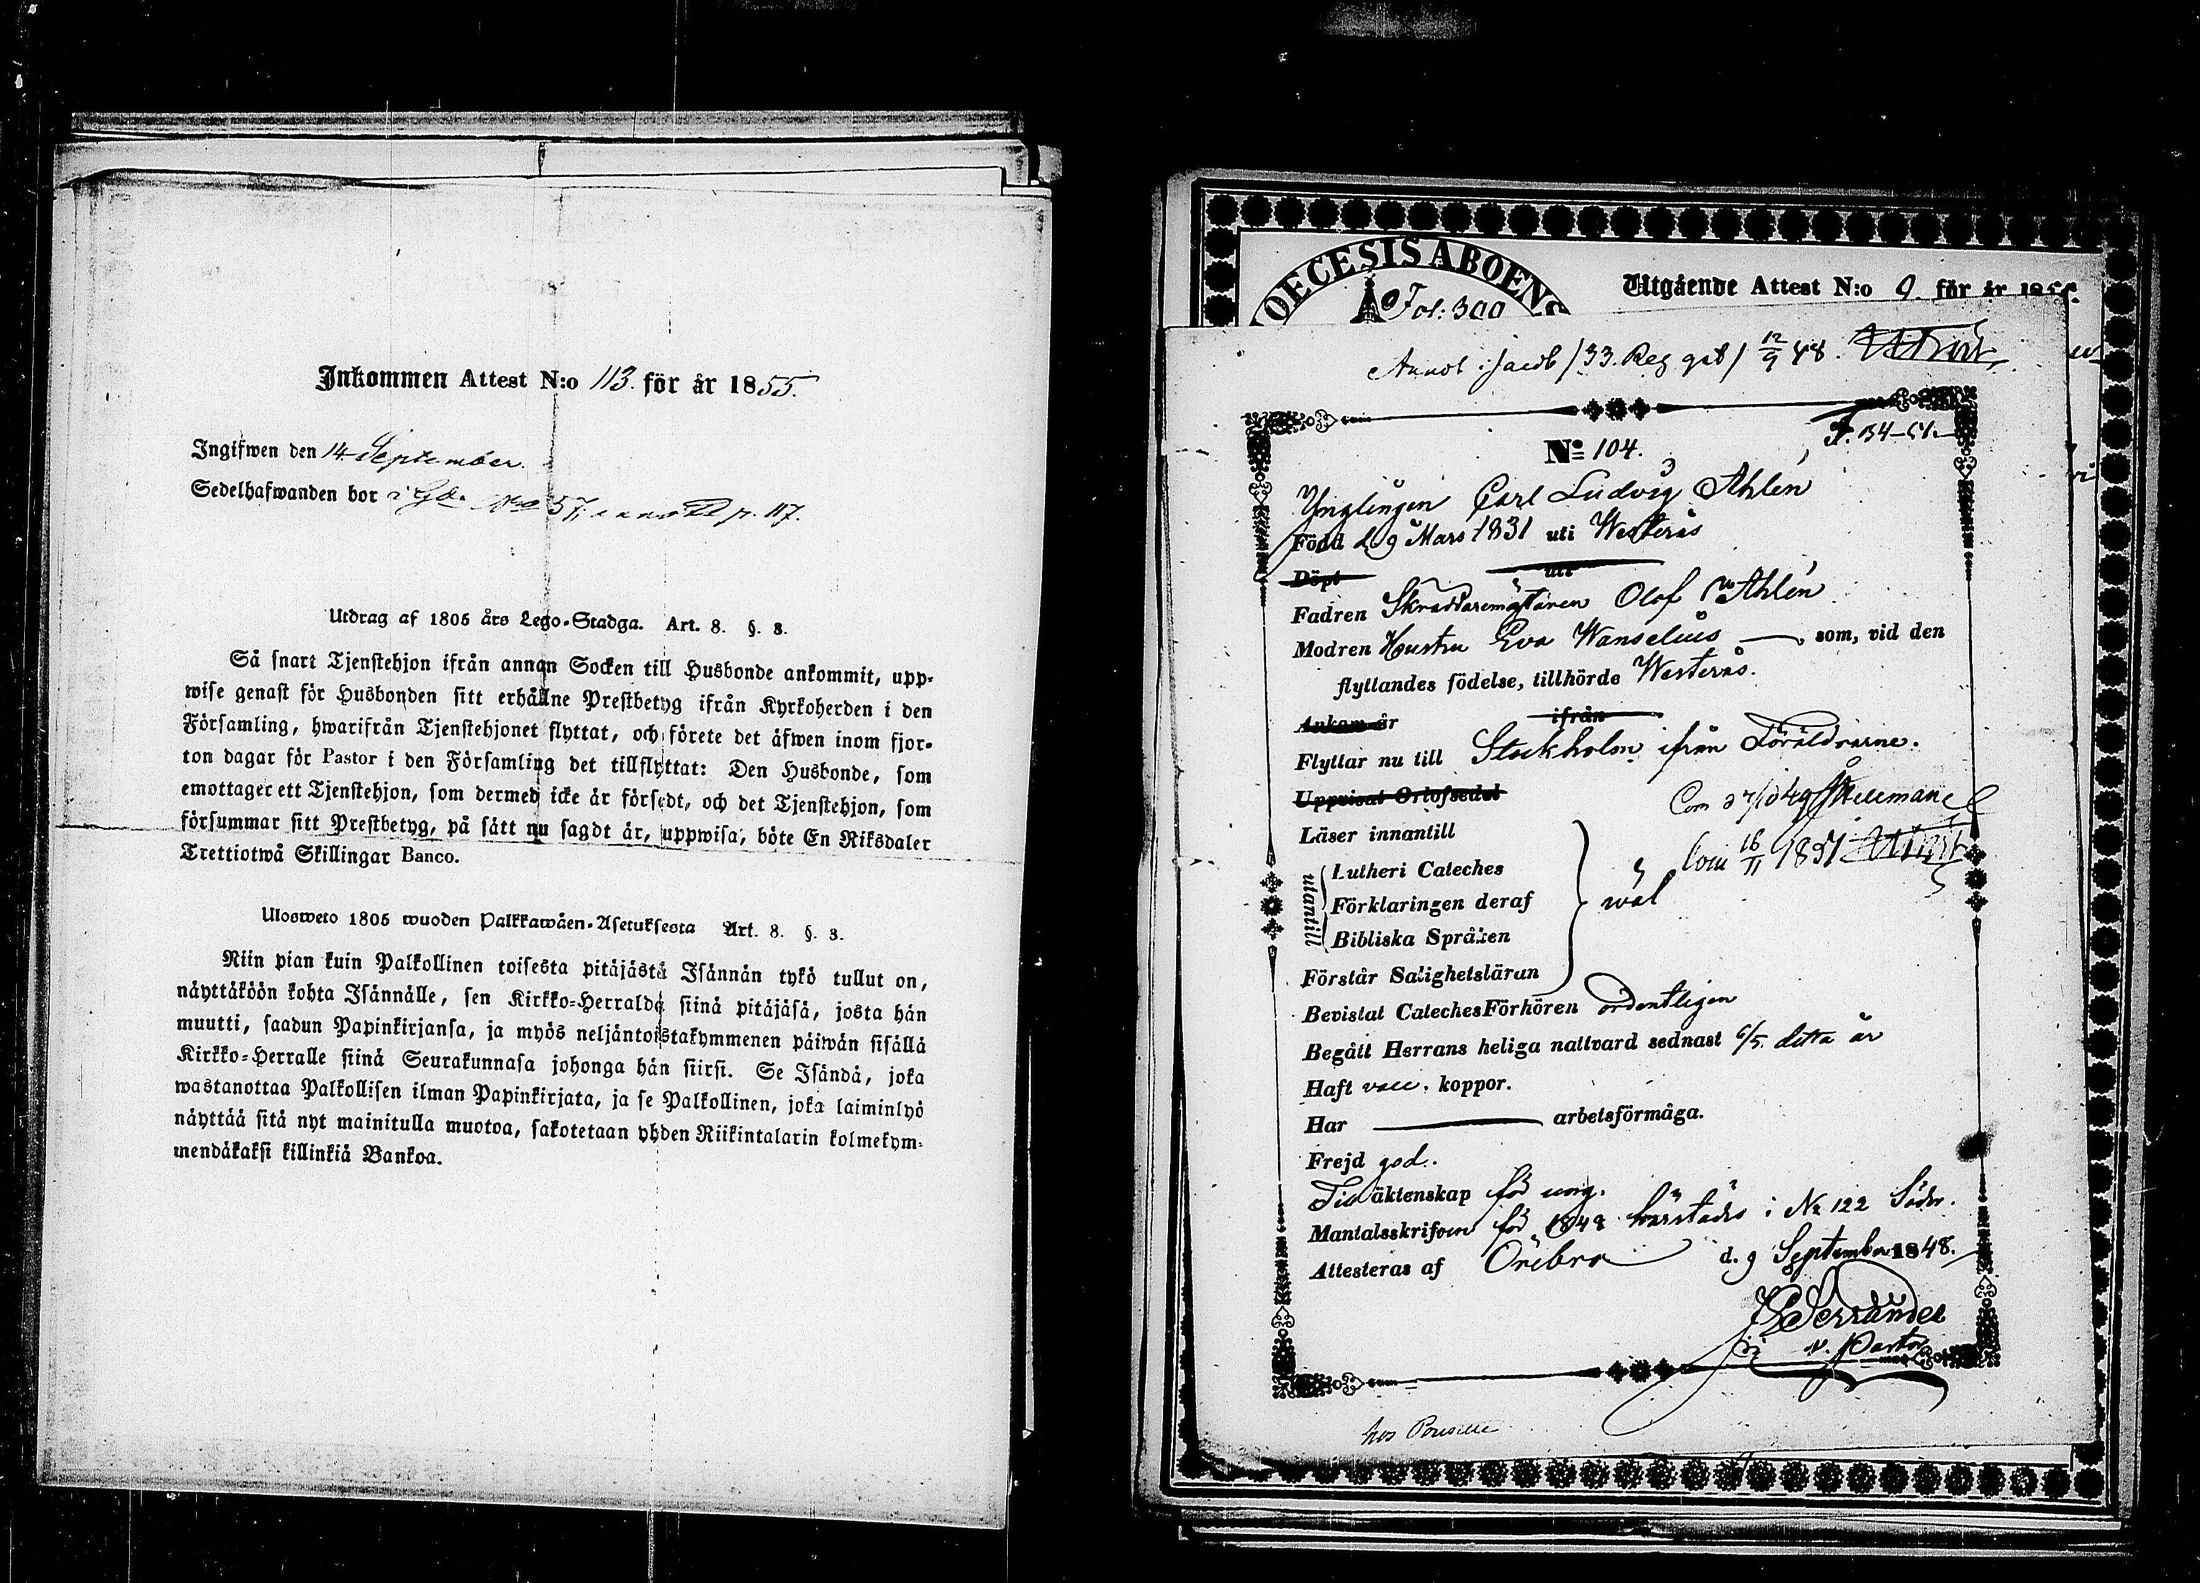 Inkommen Attest N:o 113. för år 1855.
Ingifwen den 14 September.
Sedelhafwanden bor i Gd. No 57, annot p. 117.
Utdrag af 1805 års Lego-Stadga. Art. 8. §. 3.
Så snart Tjenstehjon ifrån annan Socken till Husbonde ankommit, upp-
wise genast för Husbonden sitt erhållne Prestbetyg ifrån Kyrkoherden i den
Församling, hwarifrån Tjenstehjonet flyttat, och förete det äfwen inom fjor-
ton dagar för Pastor i den Församling det tillflyttat: Den Husbonde, som
emottager ett Tjenstehjon, som dermed icke är försedt, och det Tjenstehjon, som
försummar sitt Prestbetyg, på sätt nu sagdt är, uppwisa, böte En Riksdaler
Trettiotwå Skillingar Banco.
Ulosweto 1805 wuoden Palkkawäen-Asetuksesta Art. 8. §. 3.
Niin pian kuin Palkollinen toisesta pitäjästä Isännän tykö tullut on,
näyttäköön kohta Isännälle, sen Kirkko-Herralda siinä pitäjäsä, josta hän
muutti, saadun Papinkirjansa, ja myös neljäntoistakymmenen päiwän sisällä
Kirkko-Herralle siinä Seurakunnasa johonga hän siirsi. Se Isändä, joka
wastanottaa Palkollisen ilman Papinkirjata, ja se Palkollinen, joka laiminlyö
näyttää sitä nyt mainitulla muotoa, sakotetaan yhden Riikintalarin kolmekym-
mendäkaksi killinkiä Bankoa.
OECESIS ABOENS
Utgående Attest N:o 9. för år 185
Fol: 300
Annot. Jacob /33. Reg gat/ 12/9 48.
No 104.
F. 134-51.
Ynglingen Carl Ludvig Ahlén
Född d. 9 Mars 1831 uti Westerås
Döpt uti
Fadren Skräddaremästaren Olof Ahlén
Modren Hustru Eva Wanselius, som, vid den
flyttandes födelse, tillhörde Westerås.
Ankom år ifrån
Flyttar nu till Stockholm ifrån Föräldrarne.
Uppvisat Orlofsedel
Com
Läser innantill
Com 16/11 1851
utantill
Lutheri Cateches
Förklaringen deraf
Bibliska Språken
wäl
Förstår Salighetsläran
Bevistat CatechesFörhören ordentligen
Begått Herrans heliga nattvard sednast 6/5. detta år
Haft vacc. koppor.
Har arbetsförmåga.
Frejd god.
Till äktenskap för ung.
Mantalsskrifven för 1848 härstädes i No 122 Söder.
Attesteras af Örebro d. 9 September 1848.
v. Pastor
hos